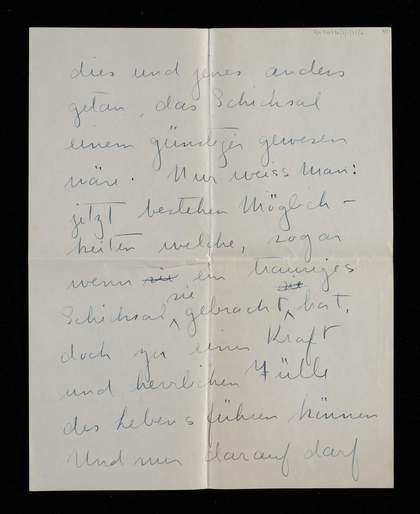 dies und jenes anders
getan, das Schicksal
einem günstiger gewesen
wäre. Nur weiss man:
jetzt bestehen Möglich-
keiten welche, sogar
wenn ein trauriges
Schicksal sie gebracht hat,
doch zu einer Kraft
und herrlichen Fülle
des Lebens führen können
Und nur darauf darf